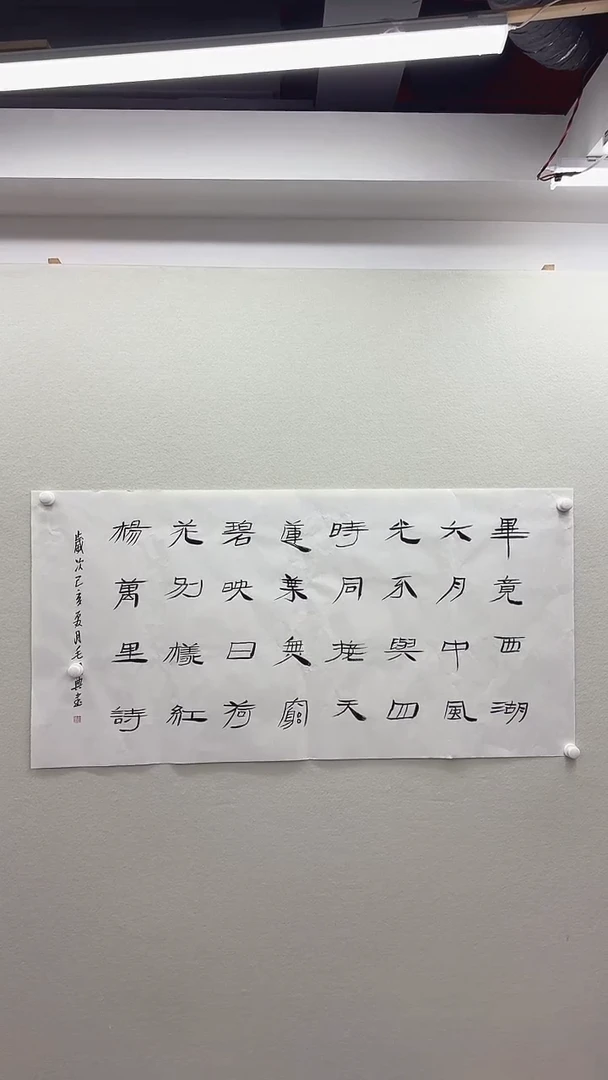 畢竟西湖
六月中風
光不與四
時同接天
蓮葉無窮
碧映日荷
花別樣紅
楊萬里詩
歲次乙亥夏月毛興書